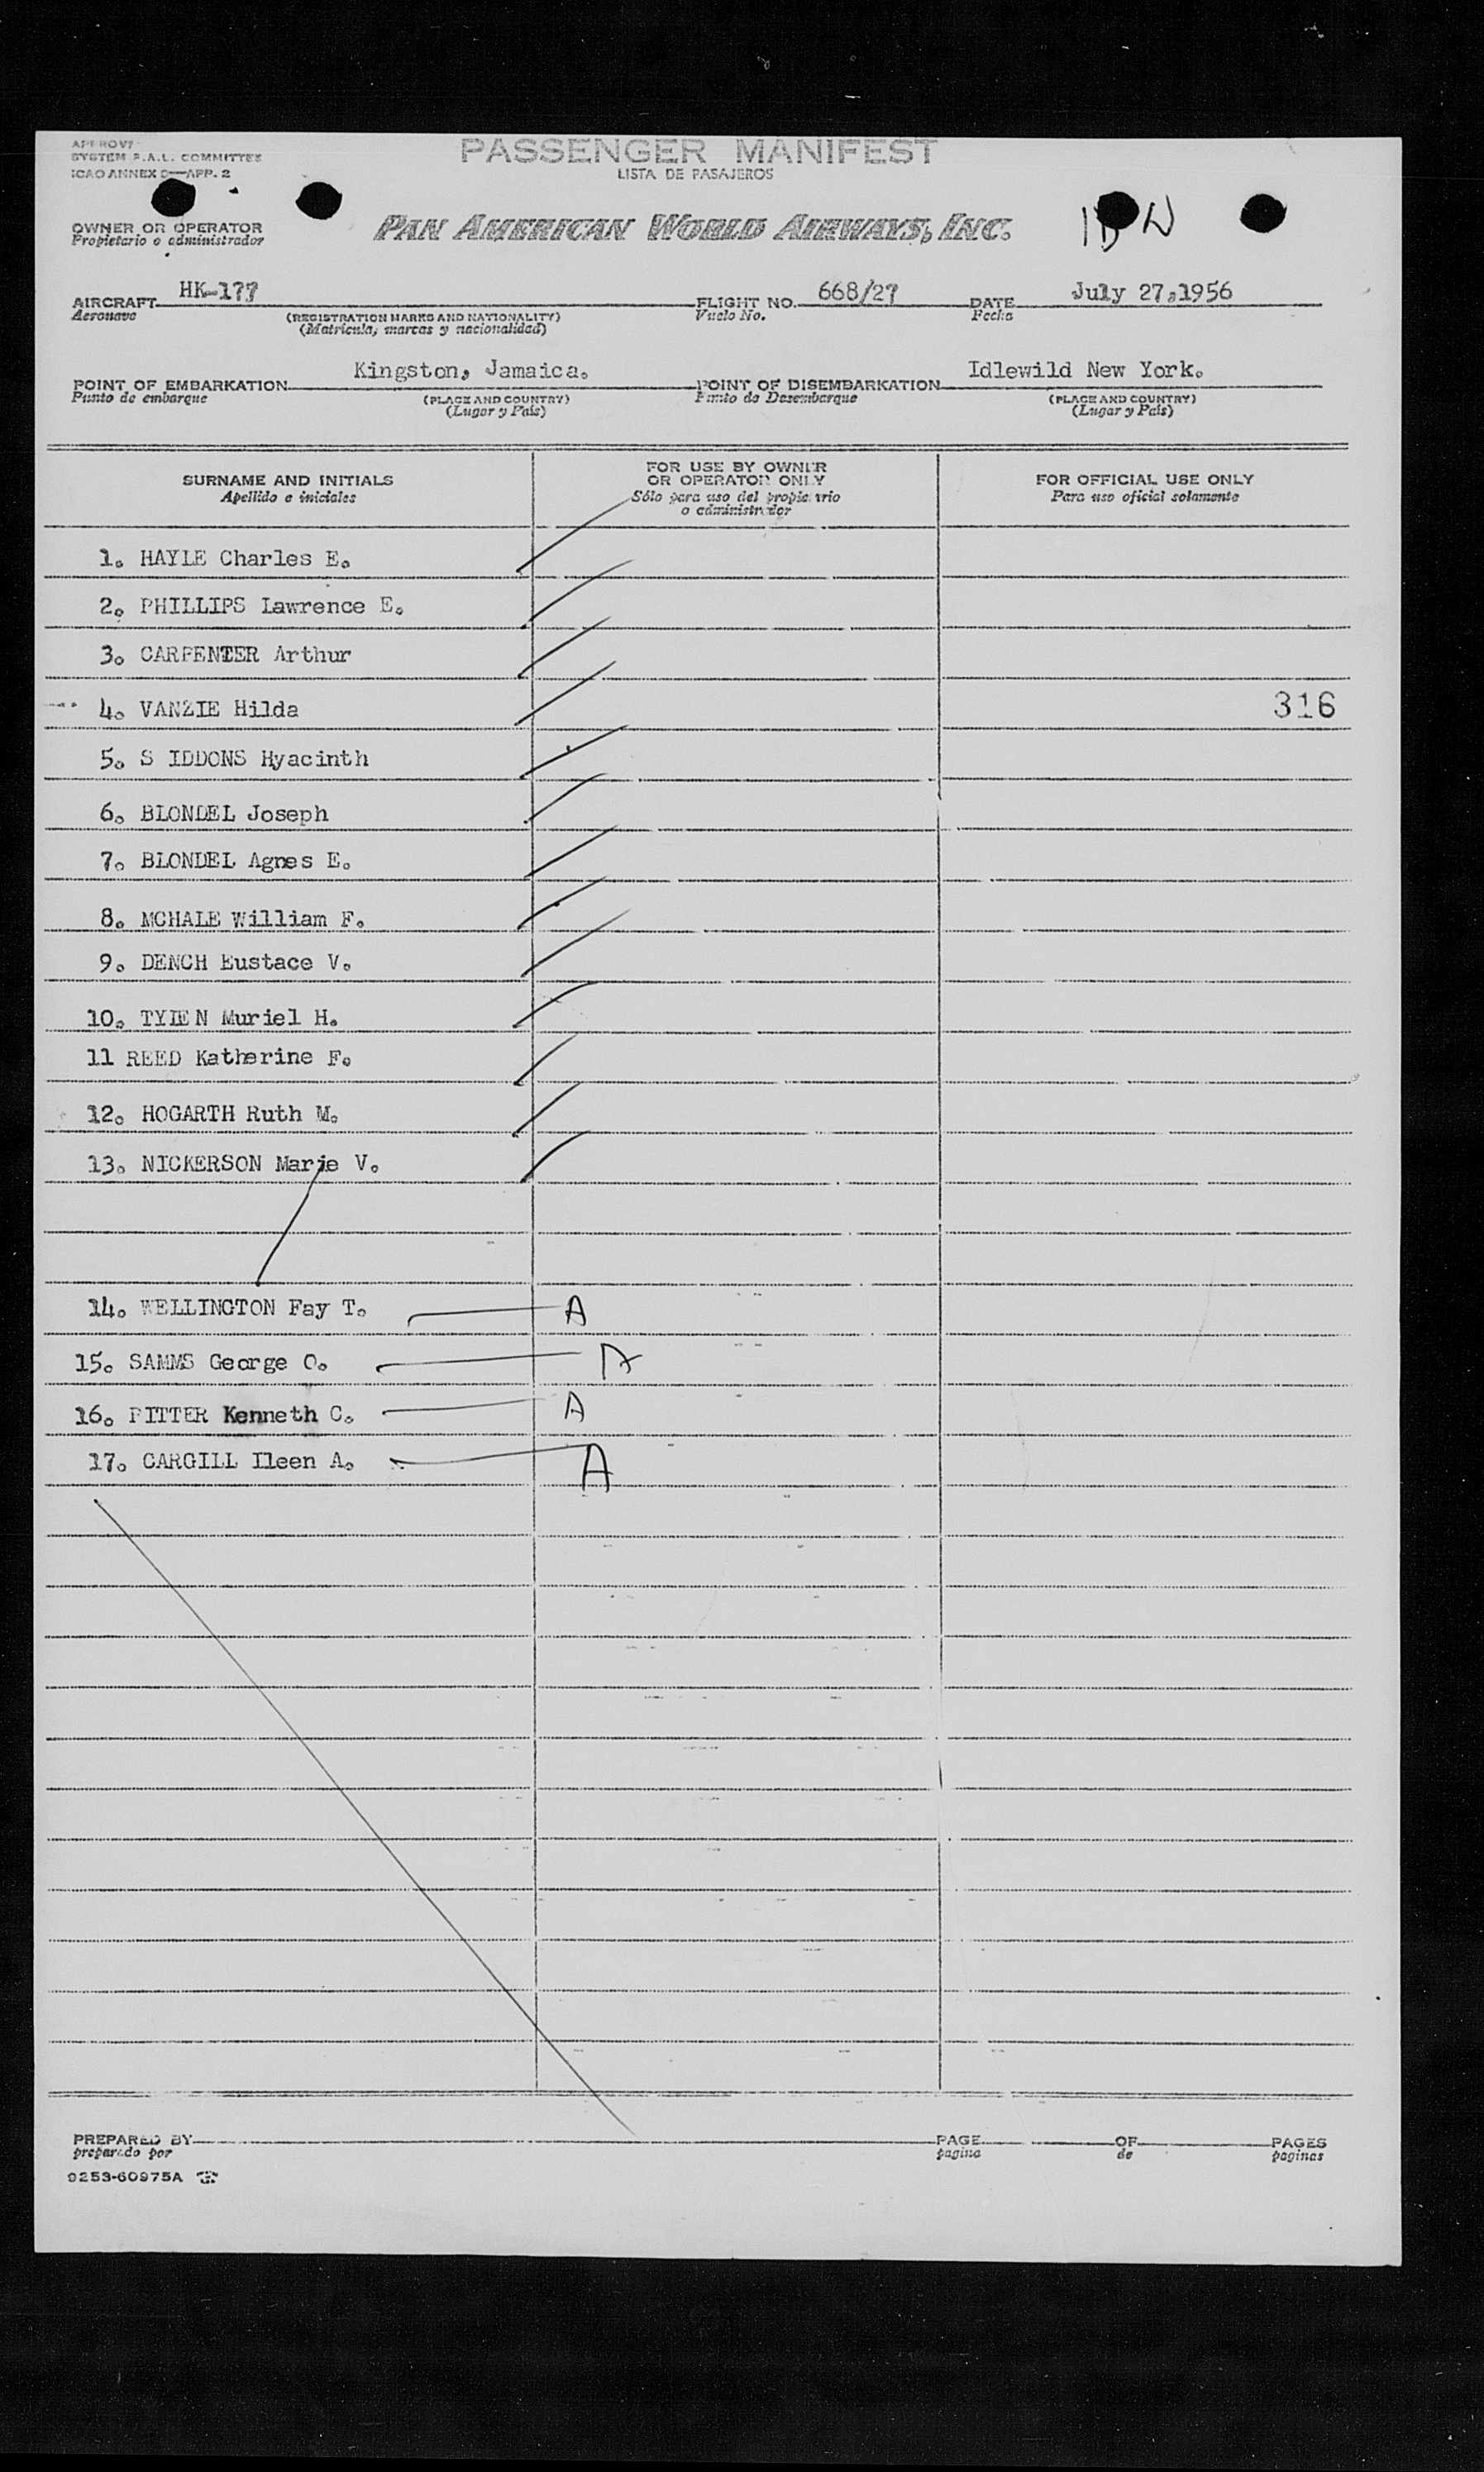 APPROV
SYSTEM P.A.L. COMMITTEE
ICAO ANNEX 9—APP. 2
PASSENGER MANIFEST
LISTA DE PASAJEROS
OWNER OR OPERATOR
Propietario o administrador
PAN AMERICAN WORLD AIRWAYS, INC.
AIRCRAFT HK-177 FLIGHT NO. 668/27 DATE July 27,1956
Aeronave (REGISTRATION MARKS AND NATIONALITY) Vuelo No. Fecha
(Matricula, marcas y nacionalidad)
POINT OF EMBARKATION Kingston, Jamaica. POINT OF DISEMBARKATION Idlewild New York.
Punto de embarque (PLACE AND COUNTRY) Punto de Desembarque (PLACE AND COUNTRY)
(Lugar y País) (Lugar y País)
SURNAME AND INITIALS
Apellido e iniciales
FOR USE BY OWNER
OR OPERATOR ONLY
Sólo para uso del propietario
o administrador
FOR OFFICIAL USE ONLY
Para uso oficial solamente
1. HAYLE Charles E.
2. PHILLIPS Lawrence E.
3. CARPENTER Arthur
4. VANZIE Hilda 316
5. S IDDONS Hyacinth
6. BLONDEL Joseph
7. BLONDEL Agnes E.
8. MCHALE William F.
9. DENCH Eustace V.
10. TYIE N Muriel H.
11 REED Katherine F.
12. HOGARTH Ruth M.
13. NICKERSON Marie V.
14. WELLINGTON Fay T. A
15. SAMMS George O. A
16. PITTER Kenneth C. A
17. CARGILL Ileen A. A
PREPARED BY PAGE OF PAGES
preparado por pagina de paginas
9253-60975A